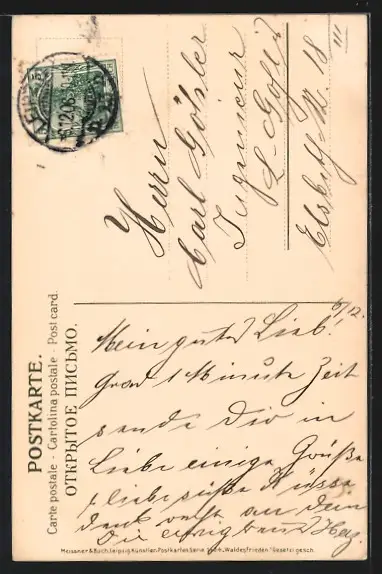 POSTKARTE.
Carte postale - Cartolina postale - Post card.
ОТКРЫТОЕ ПИСЬМО.
III
Herrn
Carl Göhler
Ingenieur
L-Gohlis
18
6/12.
Mein guter Lieb!
Grad 1 Minute Zeit
sende Dir in
Liebe einige Grüße
+ liebe süße Küsse
denk oft an dein
Die ewig treue
Meissner & Buch, Leipzig Künstler-Postkarten Serie "Waldesfrieden" Gesetzl. gesch.